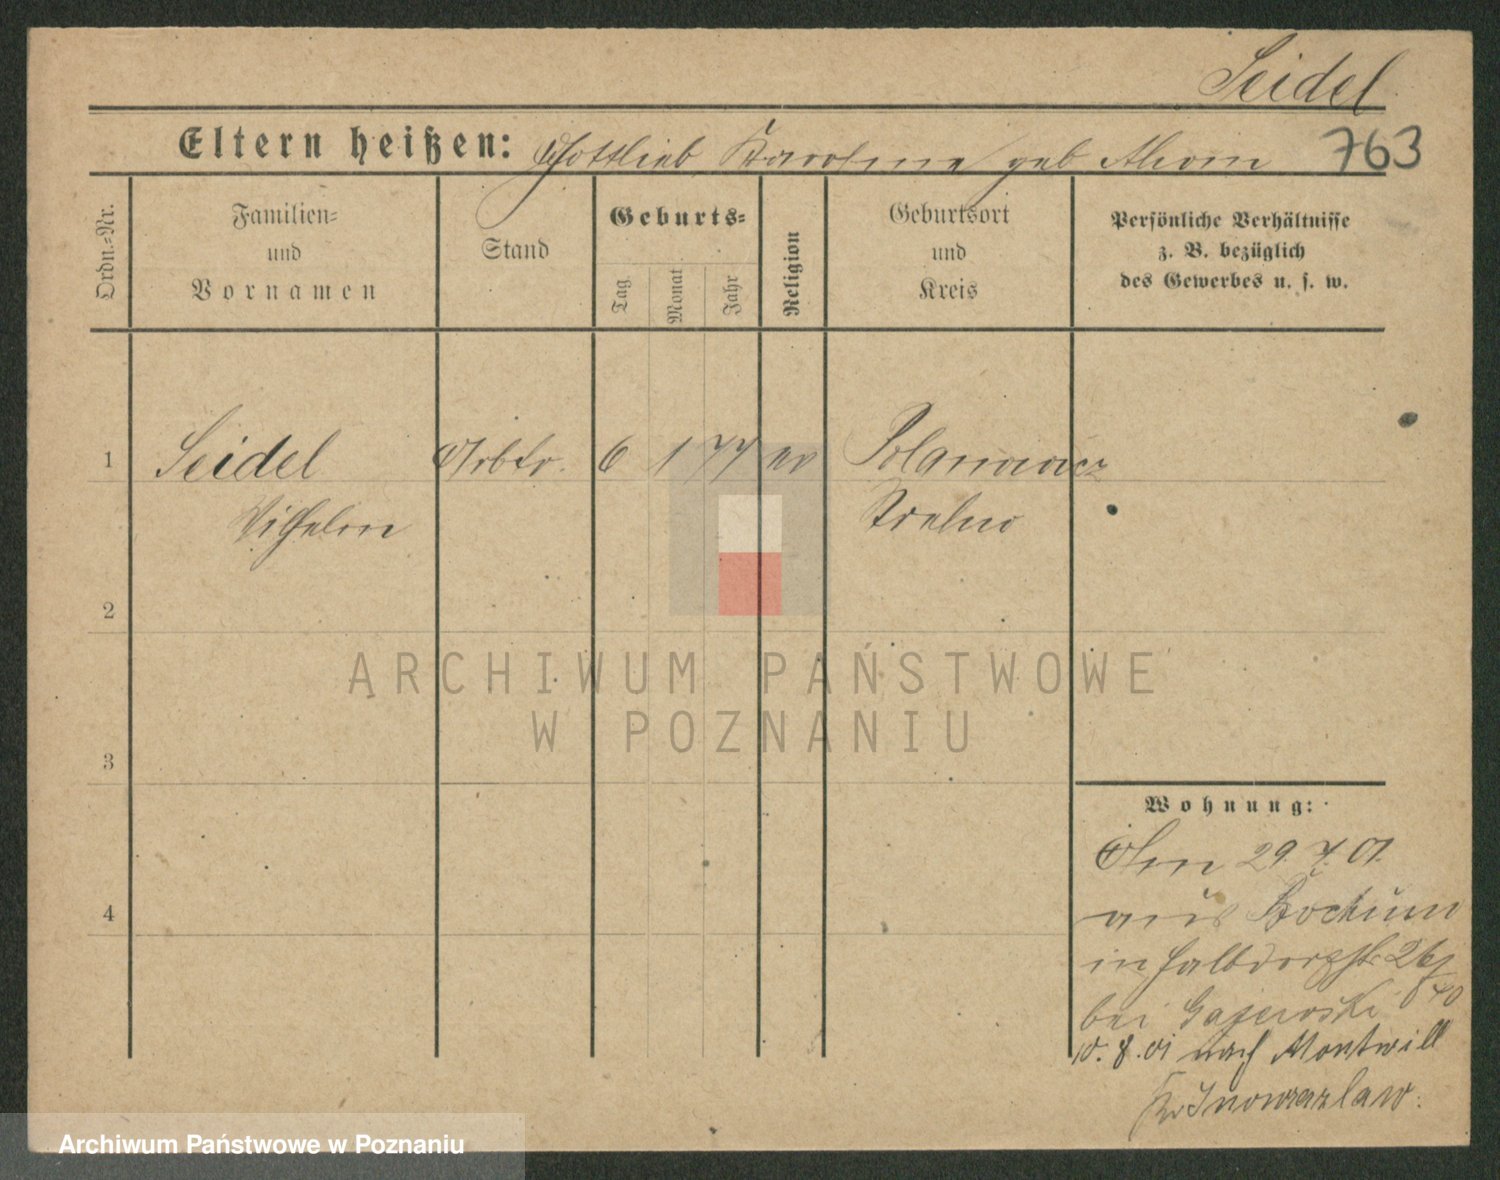 Seidel
Eltern heißen: Gottlieb Karoline geb 763
Ordn.-Nr.
Familien-
und
Vornamen
Stand
Geburts-
Tag
Monat
Jahr
Religion
Geburtsort
und
Kreis
Persönliche Verhältnisse
z. B. bezüglich
des Gewerbes u. s. w.
1 Seidel Arbtr. 6 1 77 ev Polanowicz
Wilhelm Strelno
2
ARCHIWUM PAŃSTWOWE
W POZNANIU
3
Wohnung:
Am 29.7.01.
4
aus Bochum
in Halbdorfstr 26/
bei Gajewski 40
10.8.01 nach Montwill
Kr Inowrazlaw.
Archiwum Państwowe w Poznaniu